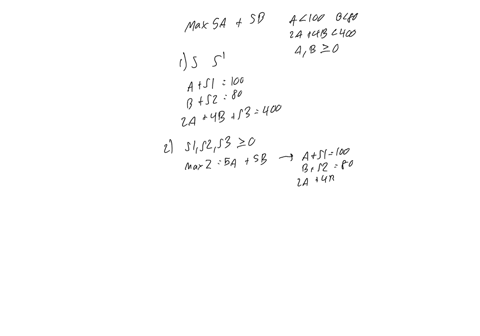 Max 5A + 5B
A < 100 B < 80
2A + 4B < 400
A, B ≥ 0
1) S S'
A + S1 = 100
B + S2 = 80
2A + 4B + S3 = 400
2) S1, S2, S3 ≥ 0
max Z = 5A + 5B → A + S1 = 100
B + S2 = 80
2A + 4B